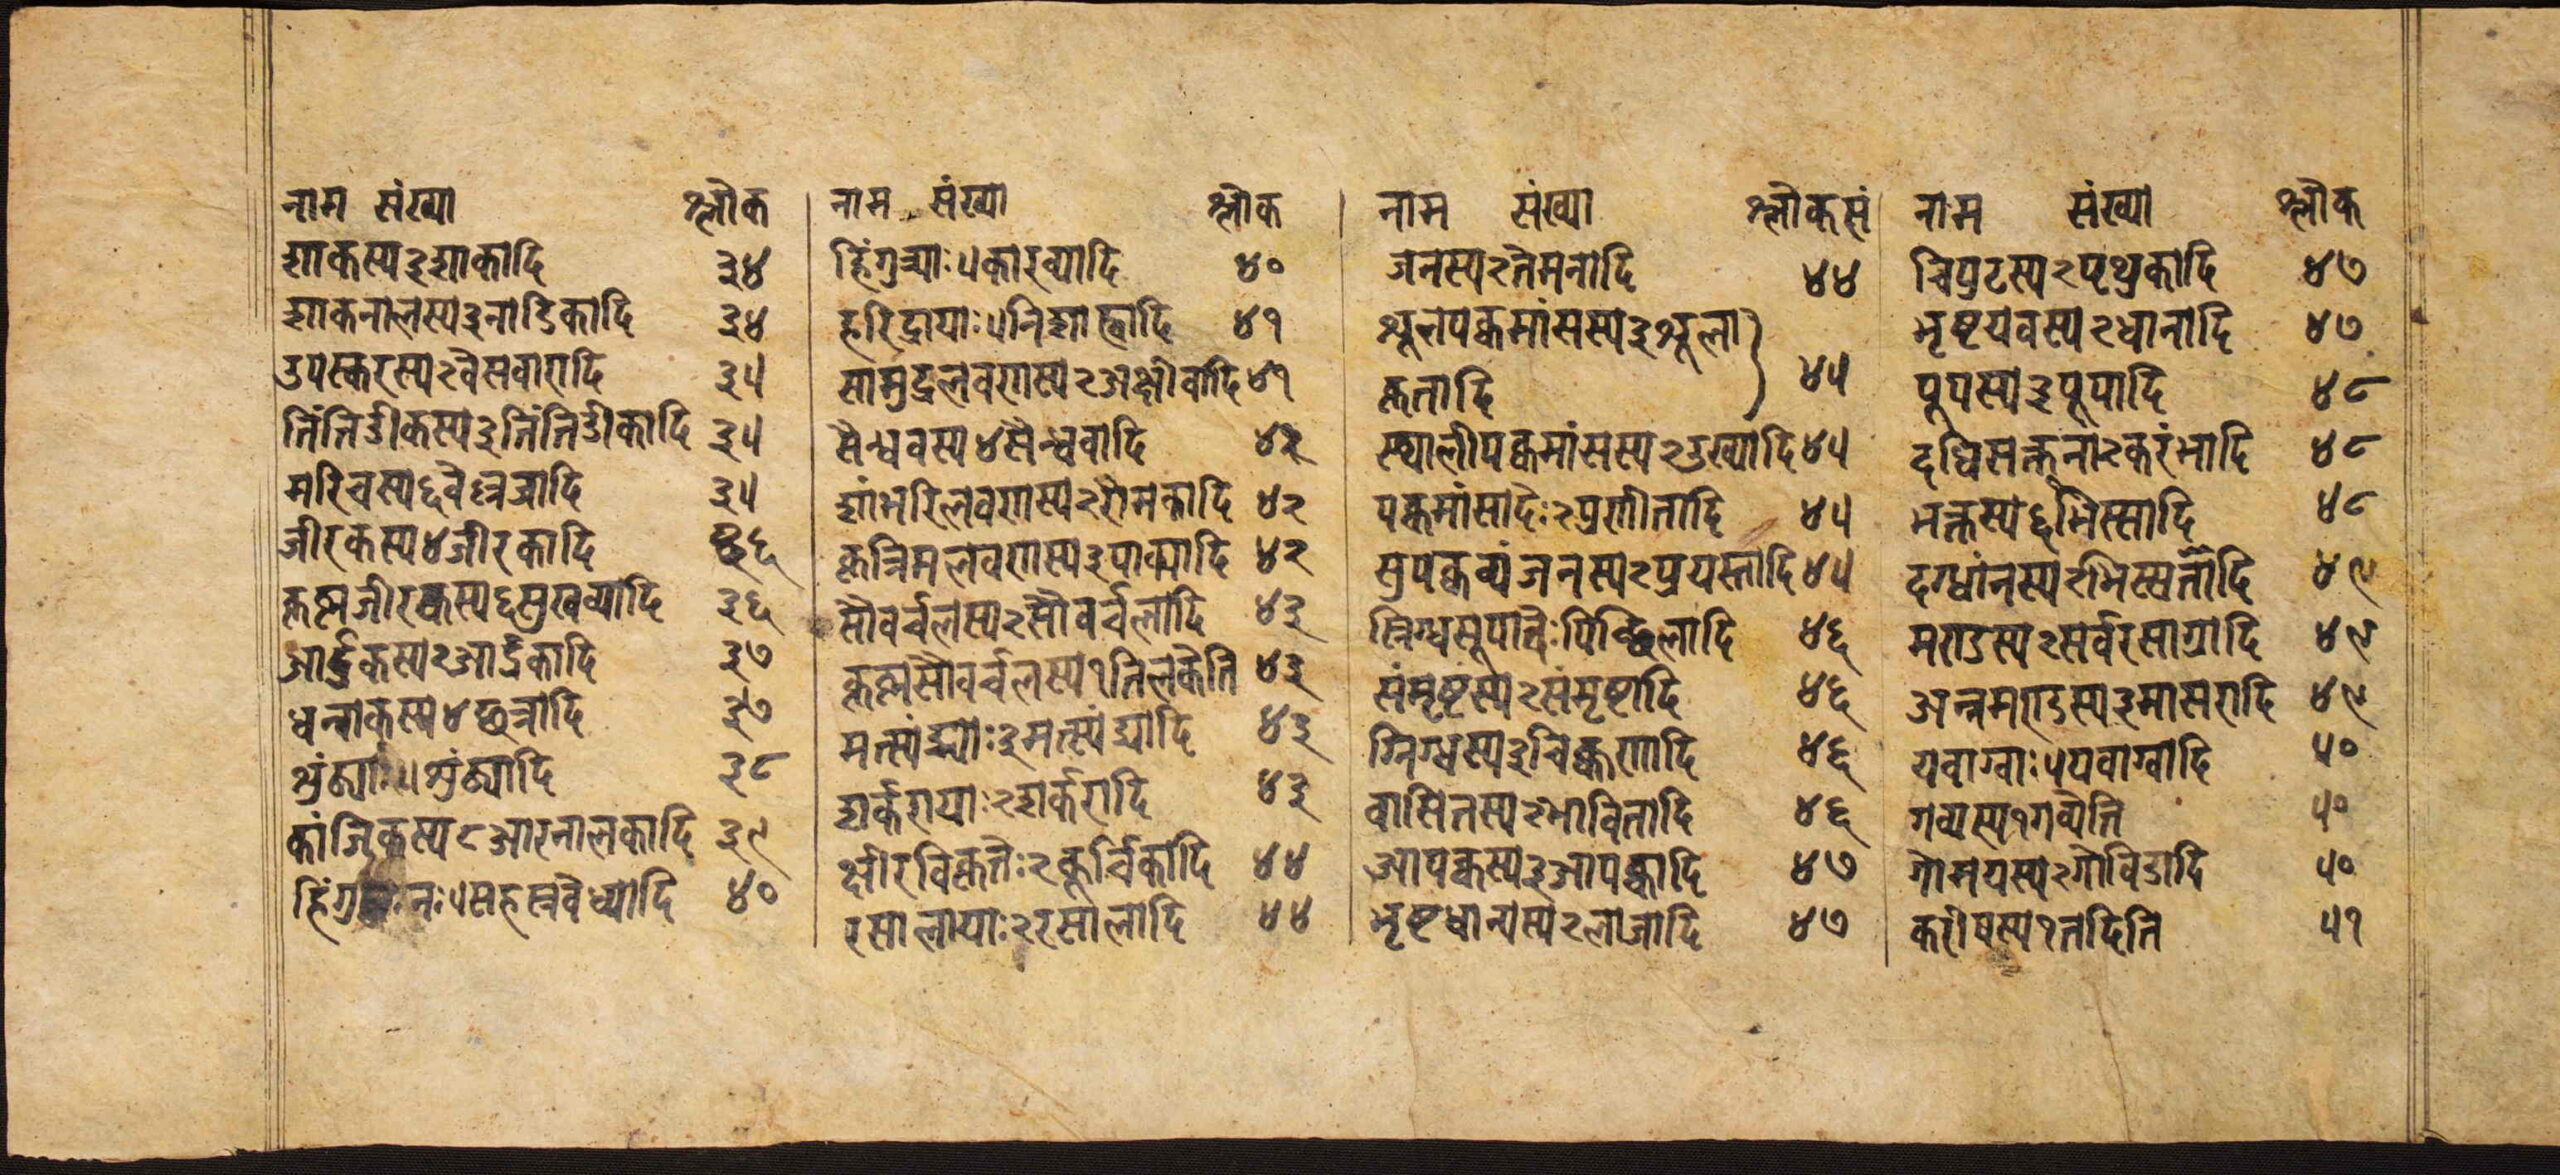 नाम संख्या श्लोक
शाकस्य ३ शाकादि ३४
शाकनालस्य ३ नाडिकादि ३४
उपस्करस्य २ वेसवारादि ३५
तिंतिडीकस्य ३ तिंतिडीकादि ३५
मरिचस्य ६ वेल्लजादि ३५
जीरकस्य ४ जीरकादि ३६
कृष्णजीरकस्य ६ सुखव्यादि ३६
आर्द्रकस्य २ आर्द्रकादि ३७
धन्याकस्य ४ छत्रादि ३७
शुंठ्याः ५ शुंठ्यादि ३८
कांजिकस्य ८ आरनालकादि ३९
हिंगु नः ५ सहस्रवेध्यादि ४०
नाम संख्या श्लोक
हिंगुद्र्याः ५ कारव्यादि ४०
हरिद्रायाः ५ निशाह्वादि ४१
सामुद्रलवणस्य २ अक्षीवादि ४१
सैन्धवस्य ४ सैन्धवादि ४२
शांभरिलवणस्य २ रौमकादि ४२
कृत्रिमलवणस्य ३ पाक्यादि ४२
सौवर्चलस्य २ सौवर्चलादि ४३
कृष्णसौवर्चलस्य १ तिलकेति ४३
मत्स्यंड्याः ३ मत्स्यंड्यादि ४३
शर्करायाः २ शर्करादि ४३
क्षीरविकृतेः २ कूर्चिकादि ४४
रसालायाः २ रसालादि ४४
नाम संख्या श्लोकसं
जनस्य २ तेमनादि ४४
शूलपक्वमांसस्य ३ शूला
कृतादि ४५
स्थालीपक्वमांसस्य २ उख्यादि ४५
पक्वमांसादेः २ प्रणीतादि ४५
सुपक्वव्यंजनस्य २ प्रयस्तादि ४५
स्निग्धसूपान्नेः पिच्छिलादि ४६
संमृष्टस्य २ संमृष्टादि ४६
स्निग्धस्य ३ चिक्कणादि ४६
वासितस्य २ भावितादि ४६
आपक्वस्य ३ आपक्वादि ४७
भृष्टधान्यस्य २ लाजादि ४७
नाम संख्या श्लोक
चिपुटस्य २ पृथुकादि ४७
भृष्टयवस्य २ धानादि ४७
पूपस्य ३ पूपादि ४८
दधिसक्तूना २ करंभादि ४८
भक्तस्य ६ भिस्सादि ४८
दग्धांनस्य २ भिस्सटादि ४९
मण्डस्य २ सर्वरसाग्रादि ४९
अन्नमण्डस्य ३ मासरादि ४९
यवाग्वाः ५ यवाग्वादि ५०
गव्यस्य १ गव्येति ५०
गोमयस्य २ गोविडादि ५०
करीषस्य १ तदिति ५१